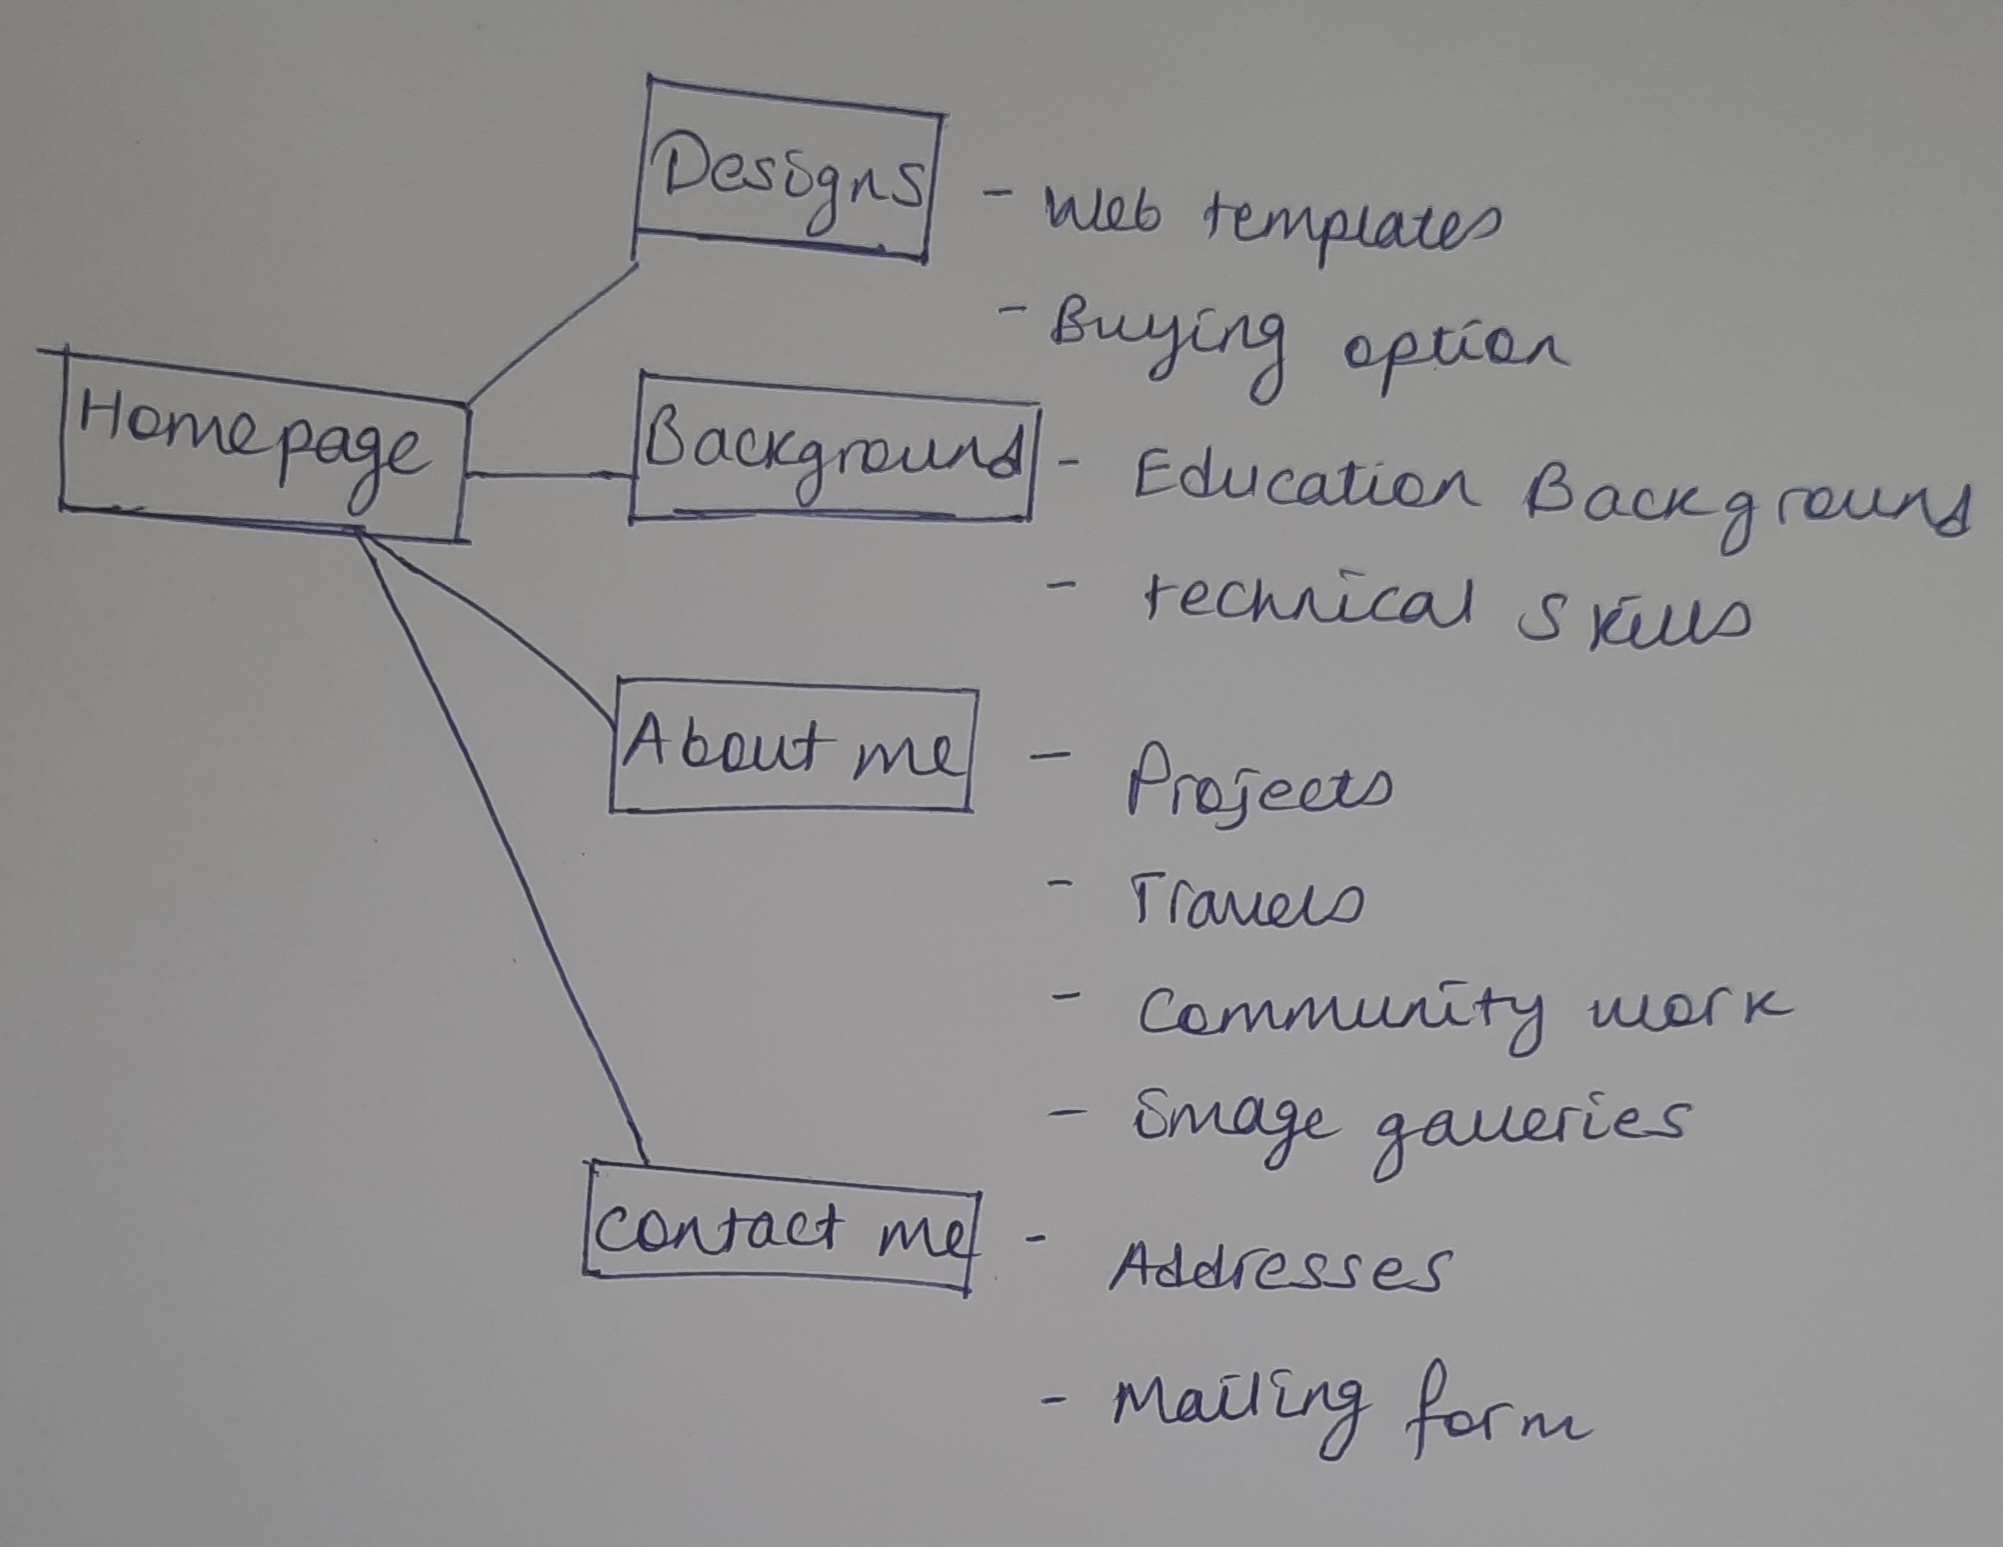 Designs
- Web templates
- Buying option
Homepage
Background
- Education Background
- technical skills
About me
- Projects
- Travels
- Community work
- Image galleries
contact me
- Addresses
- Mailing form